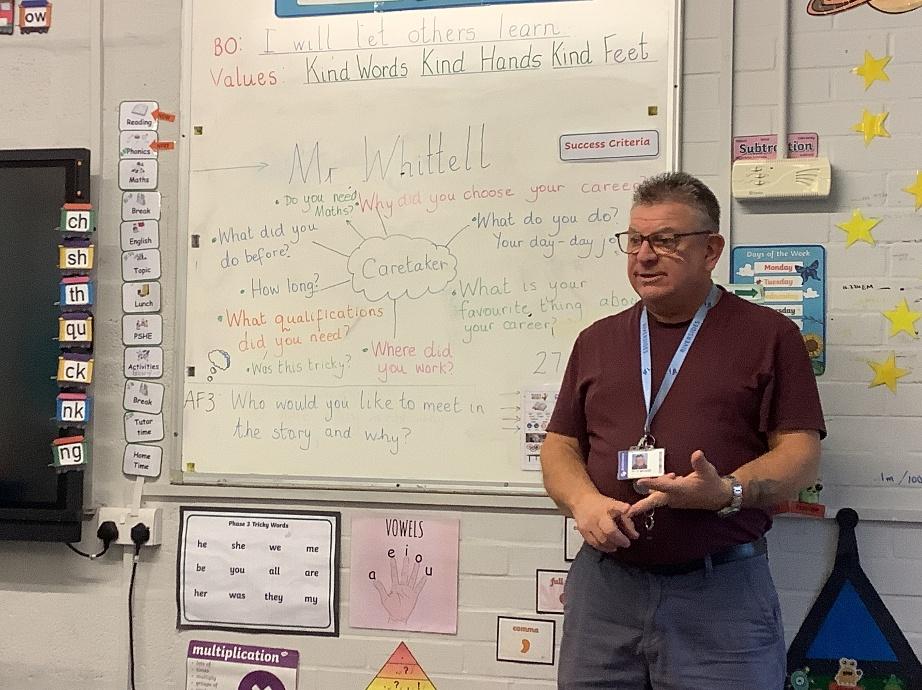 ow
BO: I will let others learn
Values: Kind Words Kind Hands Kind Feet
Mr Whittell
Success Criteria
• Do you need Maths?
• Why did you choose your career?
• What did you do before?
• What do you do?
Your day-day jo
Caretaker
• How long?
• What is your favourite thing abou
your career?
• What qualifications did you need?
• Was this tricky?
• Where did you work?
27
AF3 Who would you like to meet in
the story and why?
Reading
NOW
Phonics
NEXT
Maths
Break
English
Topic
Lunch
PSHE
Activities
Break
Tutor time
Home Time
ch
sh
th
qu
ck
nk
ng
Subtraction
Days of the Week
Monday
Tuesday
sday
Phase 3 Tricky Words
he she we me
be you all are
her was they my
VOWELS
a e i o u
comma
full
multiplication
lots of
times
multiply
groups of
? ?
1m /100